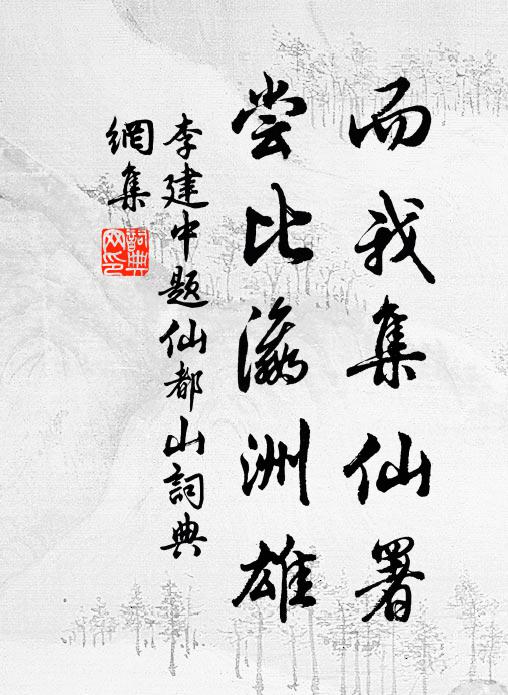 而我集仙署
尝比瀛洲雄
李建中题仙都山詞典
網集
詞典網印